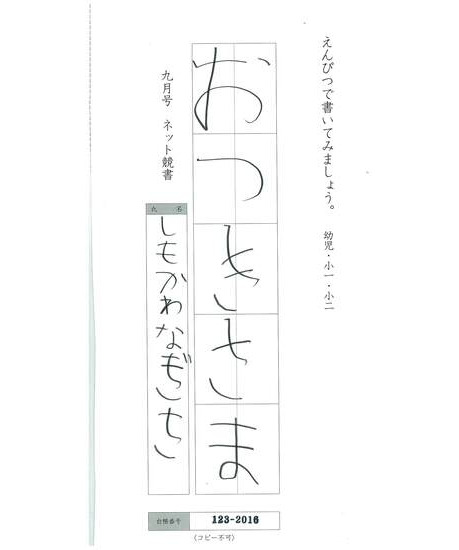 えんぴつで書いてみましょう。 幼児・小一・小二
おつきさま
九月号 ネット競書
氏 名
しもかわなぎさ
台帳番号 123-2016
(コピー不可)